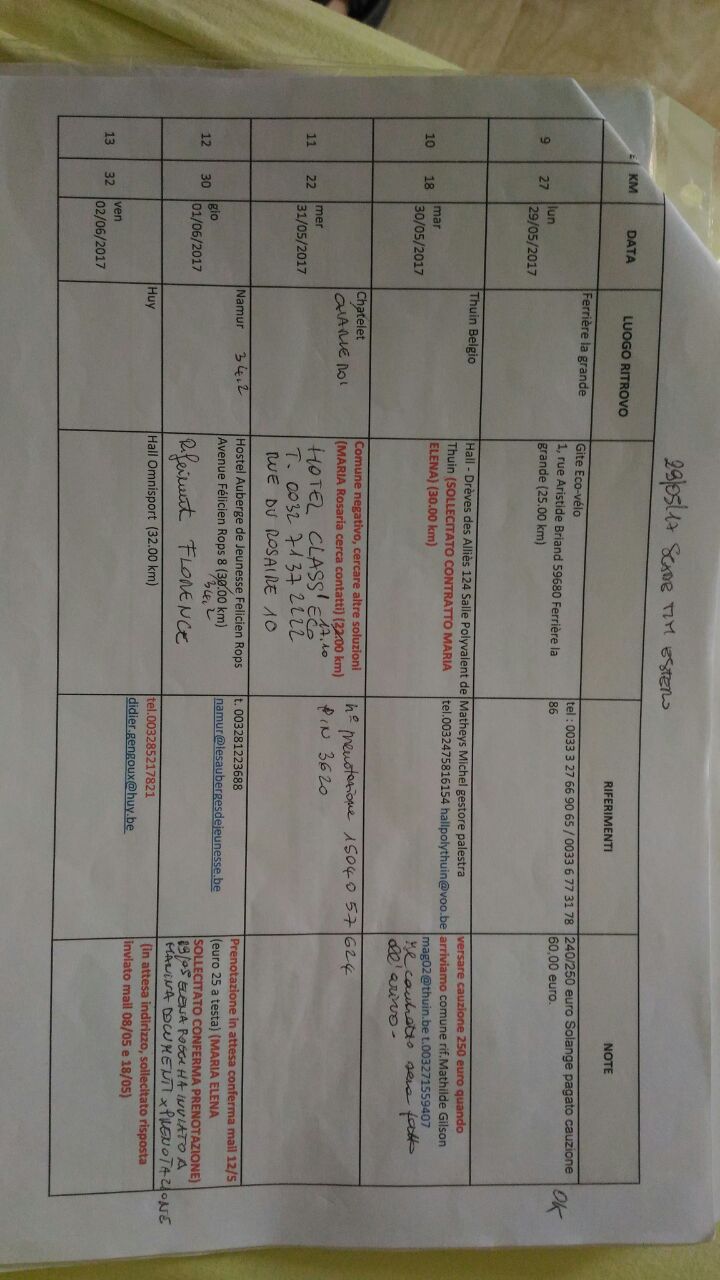 29/05/17 SCADE TIM ESTERO
KM
DATA
LUOGO RITROVO
RIFERIMENTI
NOTE
9
27
lun
29/05/2017
Ferrière la grande
Gite Eco-vélo
1, rue Aristide Briand 59680 Ferrière la
grande (25.00 km)
tel : 0033 3 27 66 90 65 / 0033 6 77 31 78
86
240/250 euro Solange pagato cauzione
60,00 euro.
OK
10
18
mar
30/05/2017
Thuin Belgio
Hall - Drèves des Alliès 124 Salle Polyvalent de
Thuin (SOLLECITATO CONTRATTO MARIA
ELENA) (30.00 km)
Matheys Michel gestore palestra
tel.0032475816154 hallpolythuin@voo.be
versare cauzione 250 euro quando
arriviamo comune rif.Mathilde Gilson
mag02@thuin.be t.003271559407
il contratto sarà fatto
all'arrivo -
11
22
mer
31/05/2017
Chatelet
Comune negativo, cercare altre soluzioni
(MARIA Rosaria cerca contatti) (22.00 km)
17.10
HOTEL CLASS' ECO
T. 0032 7137 2222
RUE DU ROSAIRE 10
n° prenotazione 1504057624
PIN 3620
12
30
gio
01/06/2017
Namur 34,2
Hostel Auberge de Jeunesse Felicien Rops
Avenue Félicien Rops 8 (30.00 km)
34,2
Riferiment FLORENCE
t. 003281223688
namur@lesaubergesdejeunesse.be
Prenotazione in attesa conferma mail 12/5
(euro 25 a testa) (MARIA ELENA
SOLLECITATO CONFERMA PRENOTAZIONE)
29/05 ELENA HA INVIATO A
MARINA DOCUMENTI x PRENOTAZIONE
13
32
ven
02/06/2017
Huy
Hall Omnisport (32.00 km)
tel.003285217821
didier.gengoux@huy.be
(in attesa indirizzo, sollecitato risposta
inviato mail 08/05 e 18/05)